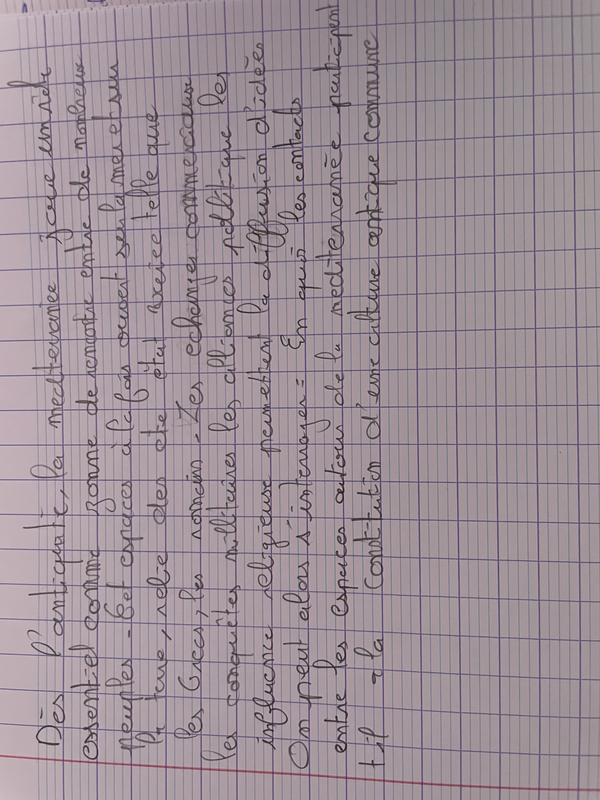 Dès l'antiquité, la mediterranée joue un rôle
essentiel comme zonne de rencontre entre de nombreux
peuples. Cet espaces à la fois ouvert sur la mer et sur
la terre, relie des cité état variée telle que
les Grecs, les romains. Les echanges commerciaux
les conquêtes millitaires les alliances politique les
influence religieuse permettent la diffusion d'idées
On peut alors s'interroger : En quoi les contacts
entre les espaces autour de la mediterranée participent
t il a la constitution d'une culture antique commune